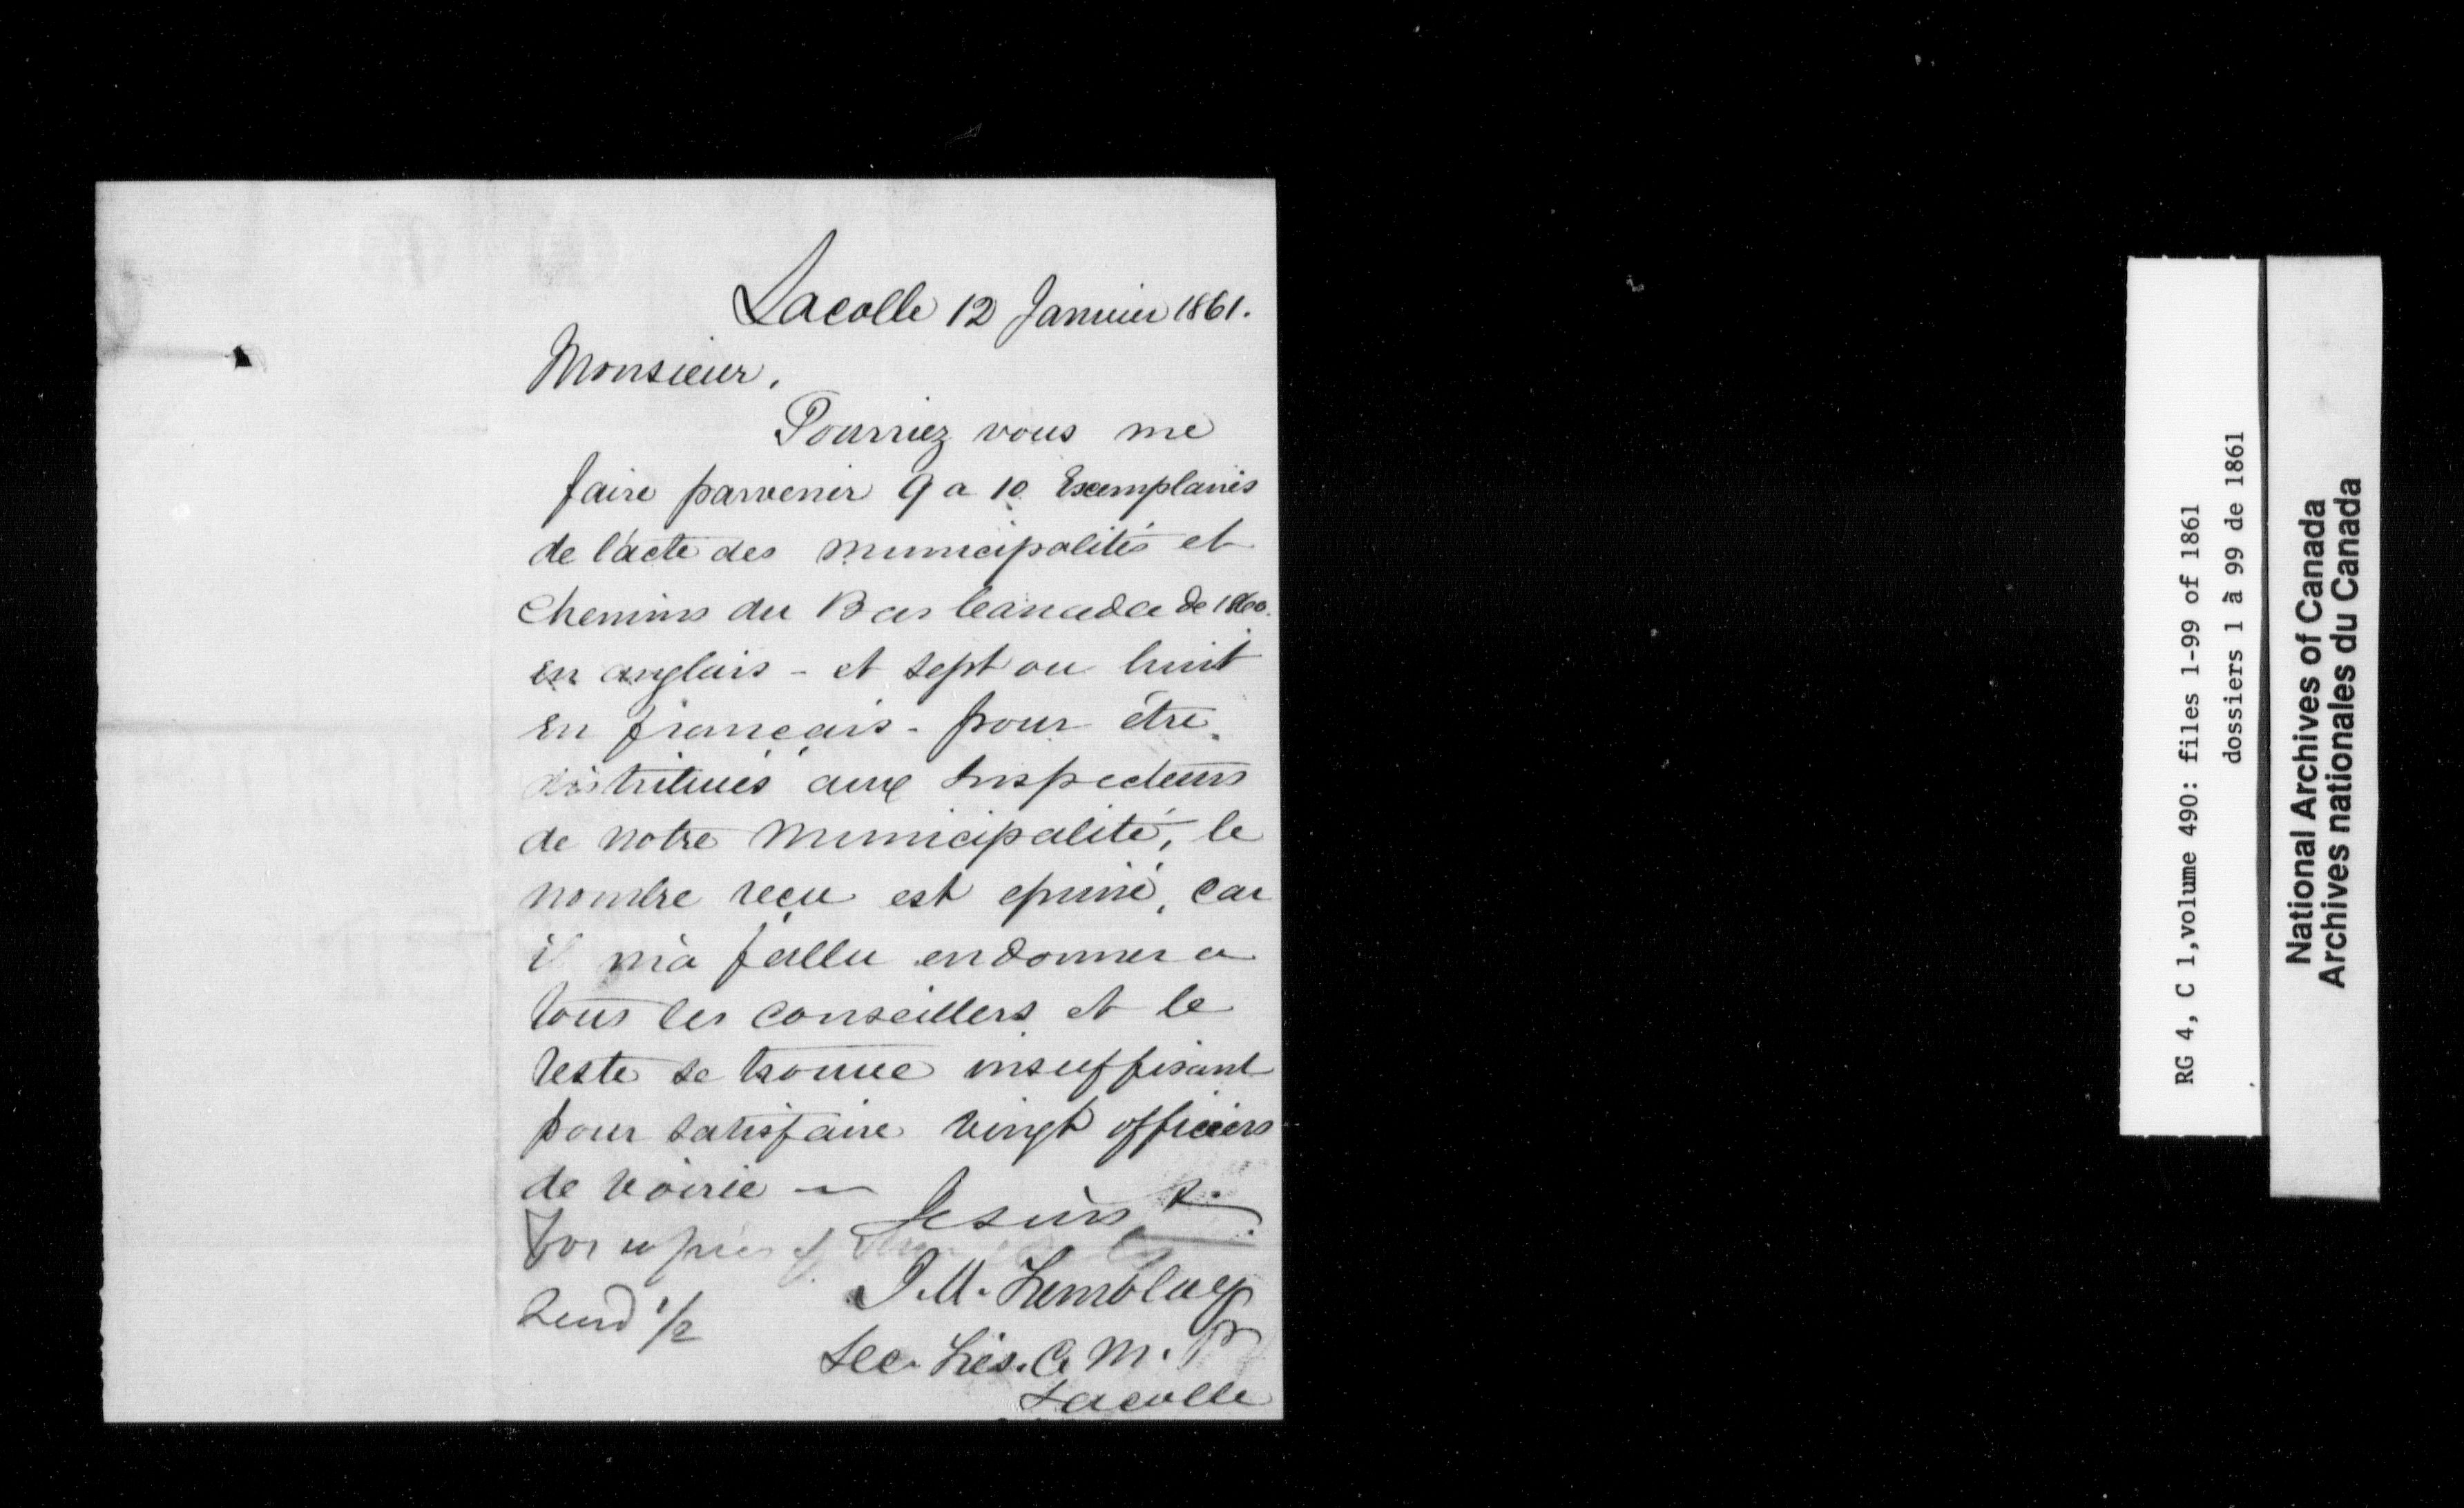 Lacolle 12 Janvier 1861.
Monsieur,
Pourriez vous me
faire parvenir 9 a 10 Exemplaires
de l'acte des municipalités et
Chemins du Bas Canada de 1860.
en anglais - et sept ou huit
en français - pour être
distribués aux Inspecteurs
de notre Municipalité, le
nombre reçu est epuisé, car
il m'a fallu en donner a
tous les conseillers et le
reste se trouve insuffisant
pour satisfaire vingt officiers
de voirie —
Je suis &.
For copies of
Send 1/2
J. U. Tremblay
Sec. Trés. C. M. P.
Lacolle
RG 4, C 1,volume 490: files 1-99 of 1861
dossiers 1 à 99 de 1861
National Archives of Canada
Archives nationales du Canada